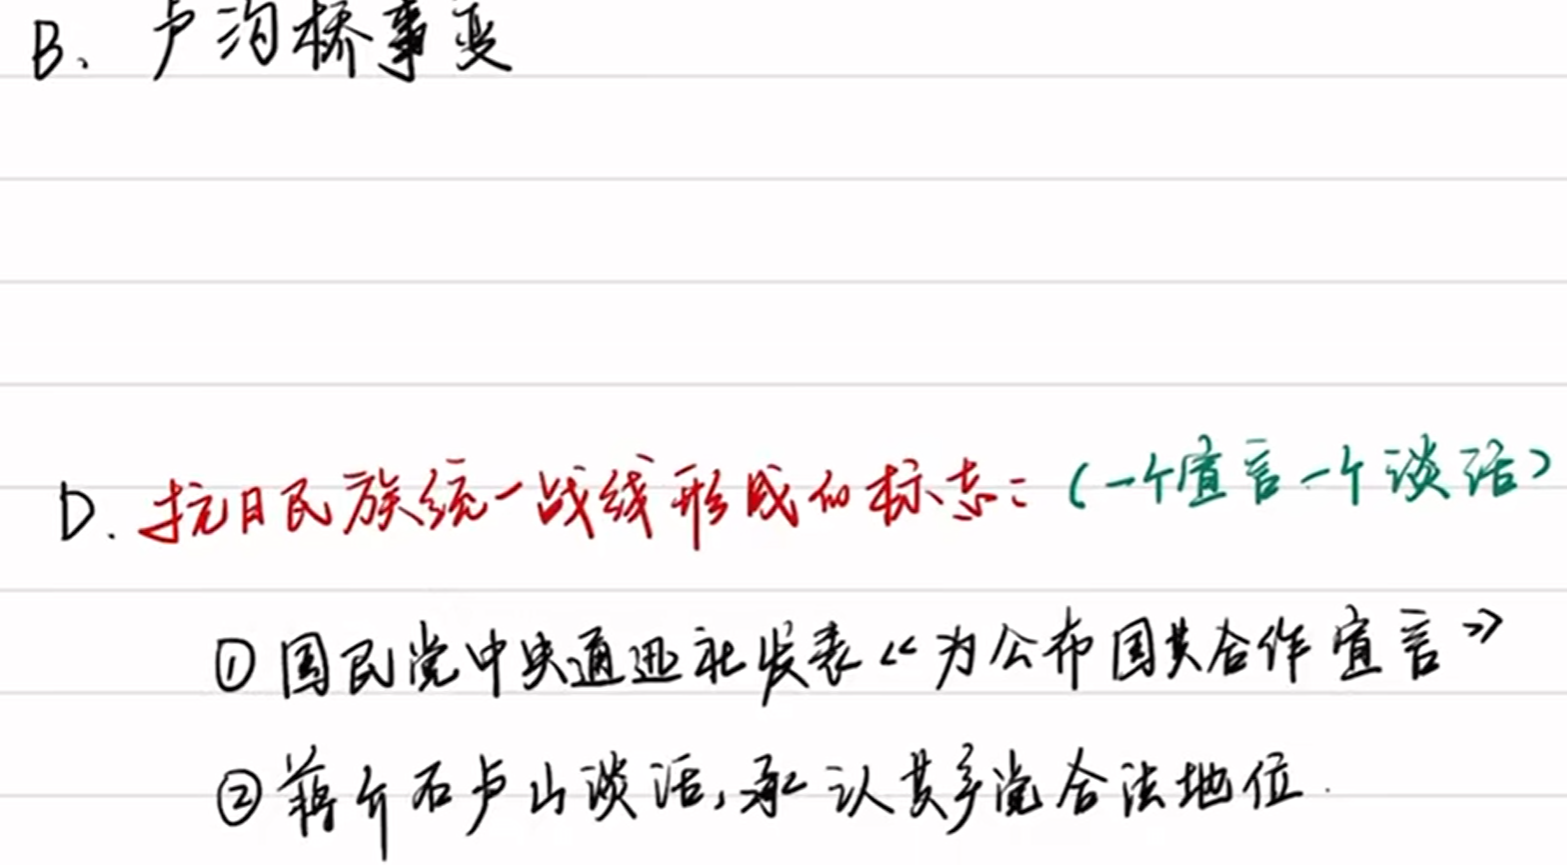 B、卢沟桥事变
D. 抗日民族统一战线形成的标志：(一个宣言一个谈话)
①国民党中央通迅社发表《为公布国共合作宣言》
②蒋介石卢山谈话,承认共产党合法地位.